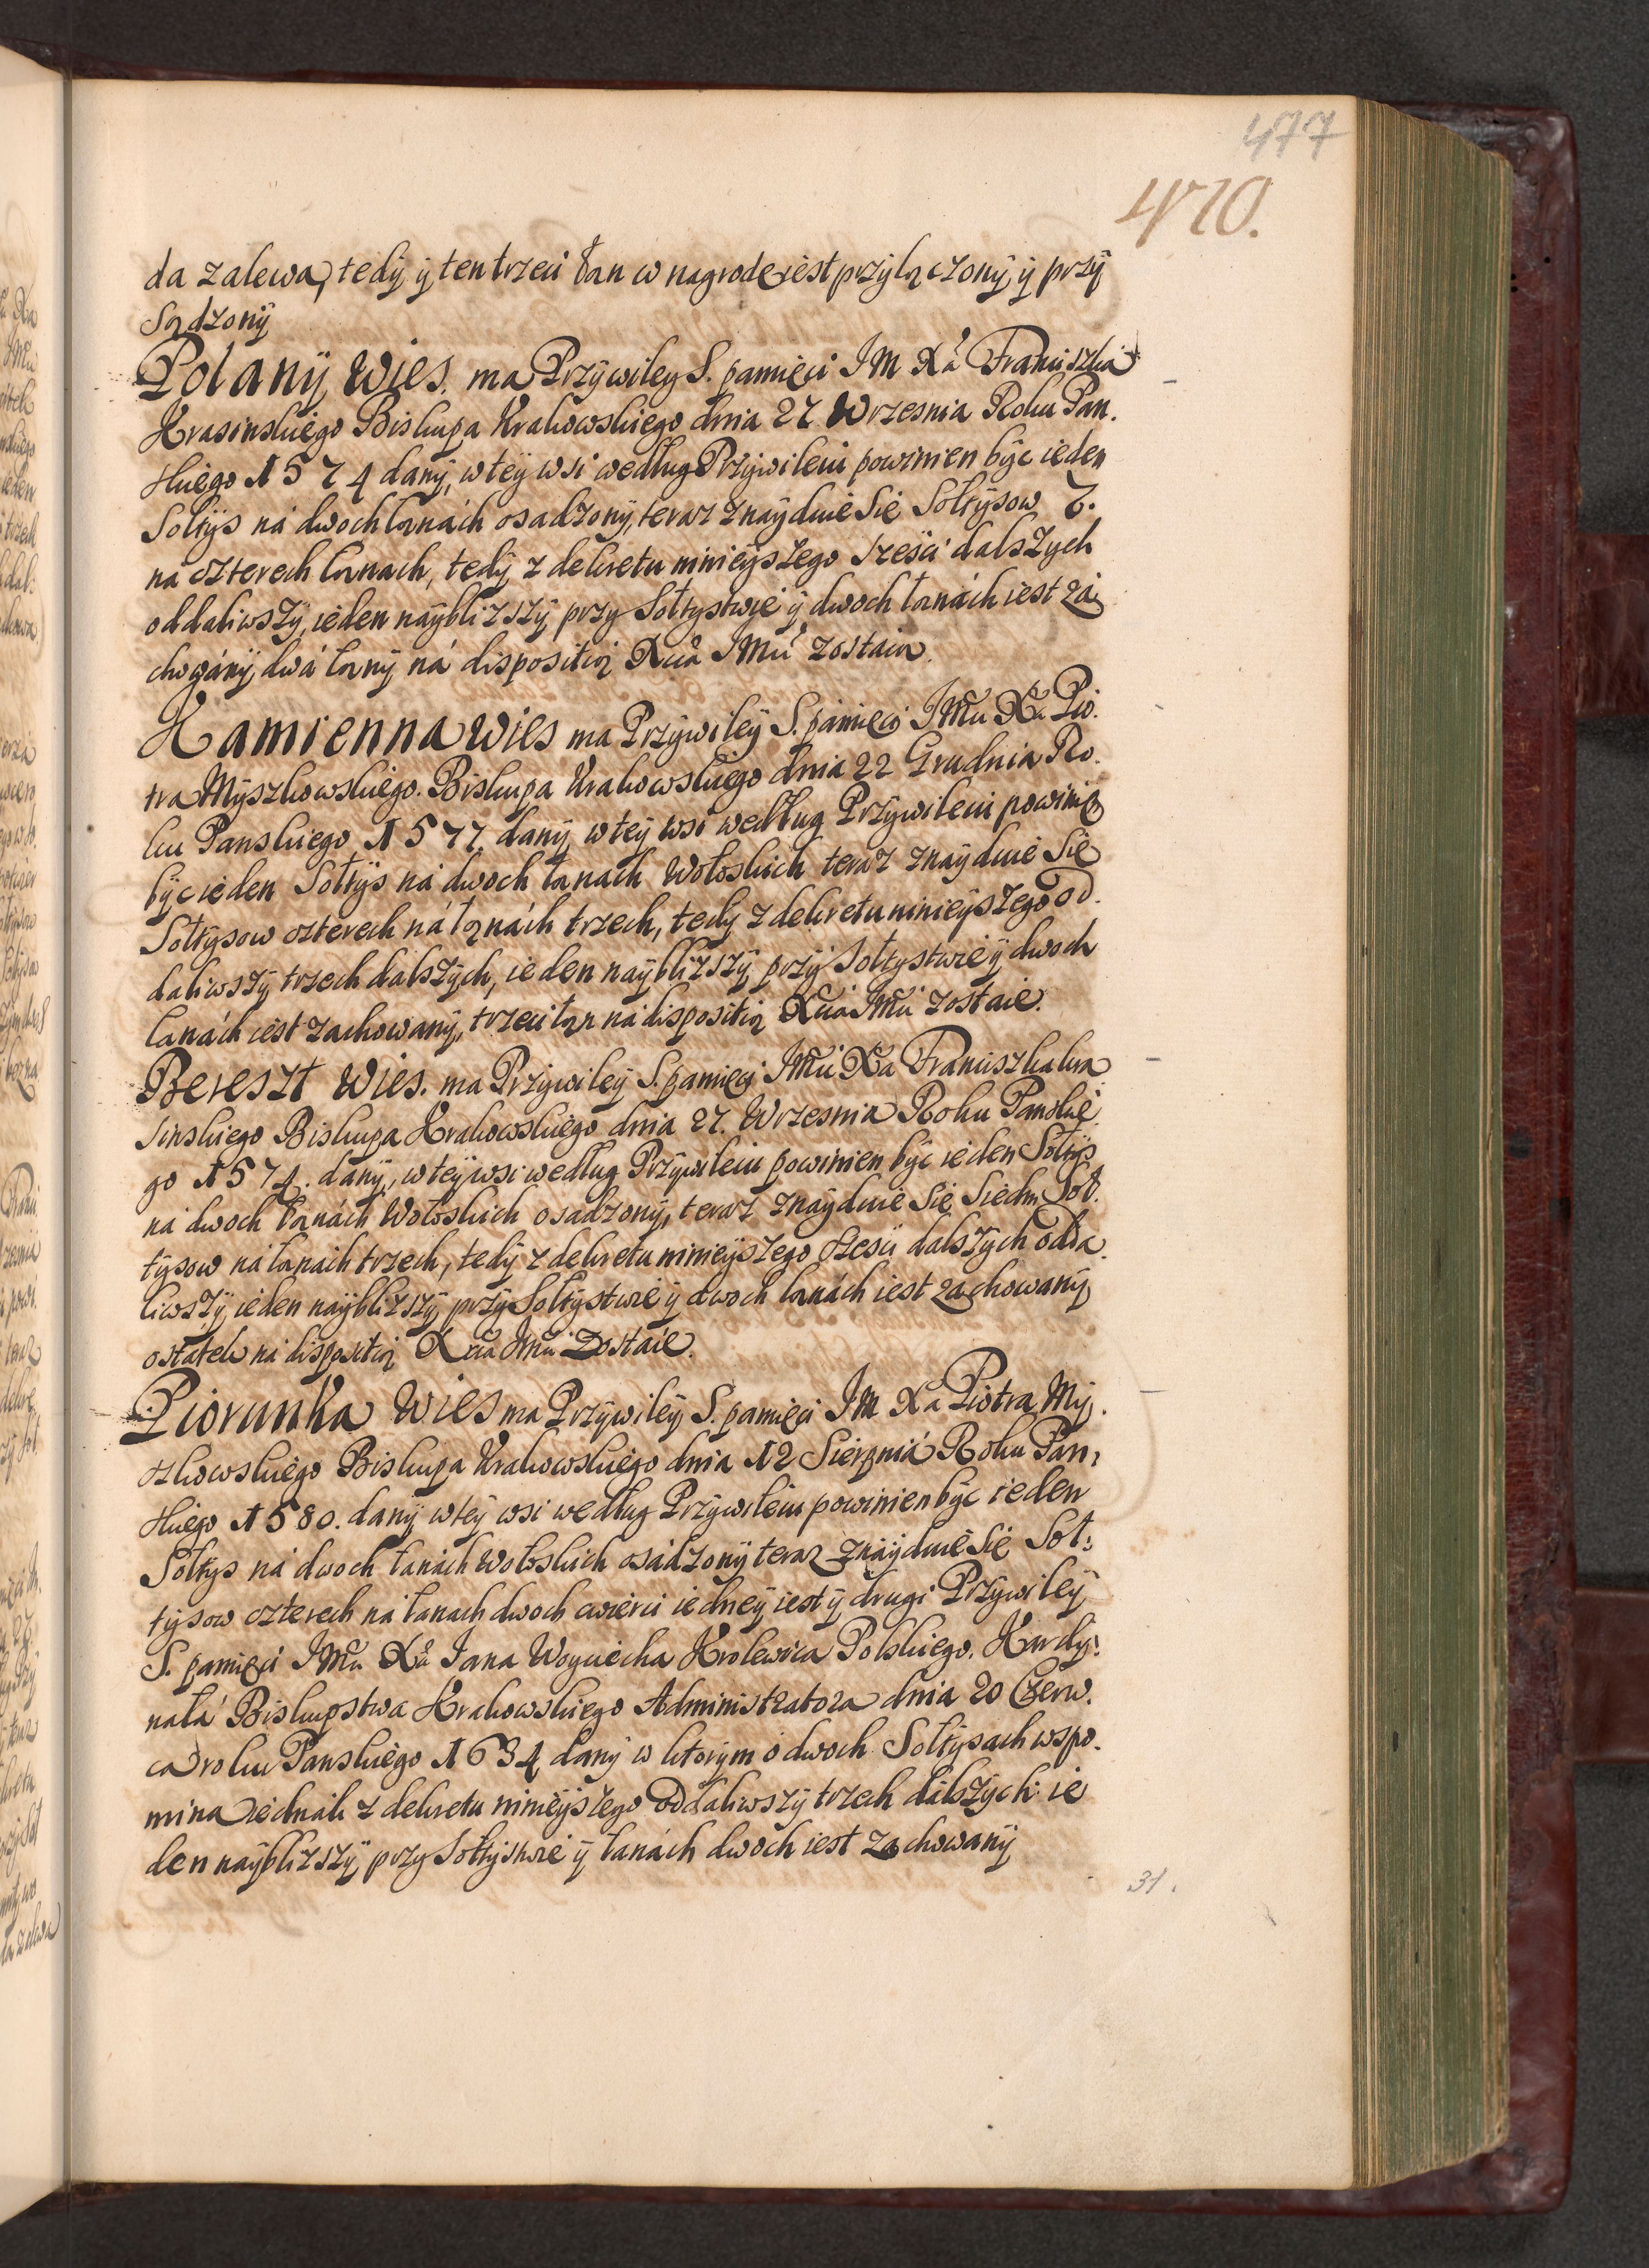 477
470.
da zalewa, tedÿ ÿ ten trzeci łan w nagrodę iest przÿłączonÿ ÿ przÿ
sądzonÿ
Polanÿ Wies. ma Przÿwiley S. pamięci JM Xa Franciszka
Krasinskiego Biskupa Krakowskiego dnia 27 Wrzesnia Roku Pan.
skiego 1574 danÿ, w teÿ wsi według Przÿwileiu powinien bÿc ieden
Sołtÿs ná dwoch łanách osadzonÿ, teraz znaÿduie się Sołtÿsow 7.
na czterech łanach, tedÿ z dekretu ninieÿszego sześci dalszÿch
oddaliwszÿ, ieden naÿbliższÿ przÿ Sołtÿstwie ÿ dwoch łanách iest za
chowánÿ, dwá łanÿ ná dispositią Xcia JMci zostaią.
Kamienna Wies ma Przÿwileÿ S. pámięci JMci Xa Pio.
tra Mÿszkowskiego. Biskupa Krakowskiego dnia 22 Grudnia Ro.
ku Panskiego 1577. danÿ, w teÿ wsi według Przÿwileiu powinię
bÿc ieden Sołtÿs ná dwoch łanach Wołoskich teraz znaÿduie się
Sołtÿsow czterech ná łanách trzech, tedÿ z dekretu ninieÿszego od.
daliwszÿ trzech dalszÿch, ieden naÿbliższÿ przÿ Sołtÿstwie ÿ dwoch
łanách iest zachowanÿ, trzeci łan ná dispositią Xcia JMci zostaie.
Bereszt Wies. ma Przÿwileÿ S. pamięci JMci Xa Franciszka Kra
sinskiego Biskupa Krakowskiego dnia 27. Wrzesnia Roku Panskie
go 1574. danÿ, w teÿ wsi według Przÿwileiu powinien bÿc ieden Sołtÿs
ná dwoch łanách Wołoskich osadzonÿ, teraz znaÿduie się siedm Soł.
tÿsow ná łanách trzech, tedÿ z dekretu ninieÿszego sześci dalszÿch odda.
liwszÿ, ieden naÿbliższÿ przÿ Sołtÿstwie ÿ dwoch łanách iest zachowanÿ
ostátek ná dispositią Xcia JMci zostáie.
Piorunka Wies ma Przÿwileÿ S. pamięci JM Xa Piotra Mÿ.
szkowskiego Biskupa Krakowskiego dnia 12 Sierpniá Roku Pan,
skiego 1580. danÿ w teÿ wsi według Przÿwileiu powinien bÿc ieden
Sołtÿs ná dwoch łanách Wołoskich osádzonÿ teraz znáÿduie się Soł:
tÿsow czterech ná łanach dwoch cwierci iedneÿ iest ÿ drugi Przÿwileÿ
S. pamięci JMci Xa Jana Woÿciecha Krolewica Polskiego. Kardÿ:
nałá Biskupstwa Krakowskiego Administratora dnia 20 Czerw.
ca roku Panskiego 1634 danÿ w ktorÿm o dwoch Sołtÿsach wspo.
mina iednák z dekretu ninieÿszego oddaliwszÿ trzech dálszÿch ie
den naÿbliższÿ przÿ Sołtÿstwie ÿ łanách dwoch iest zachowanÿ
31.